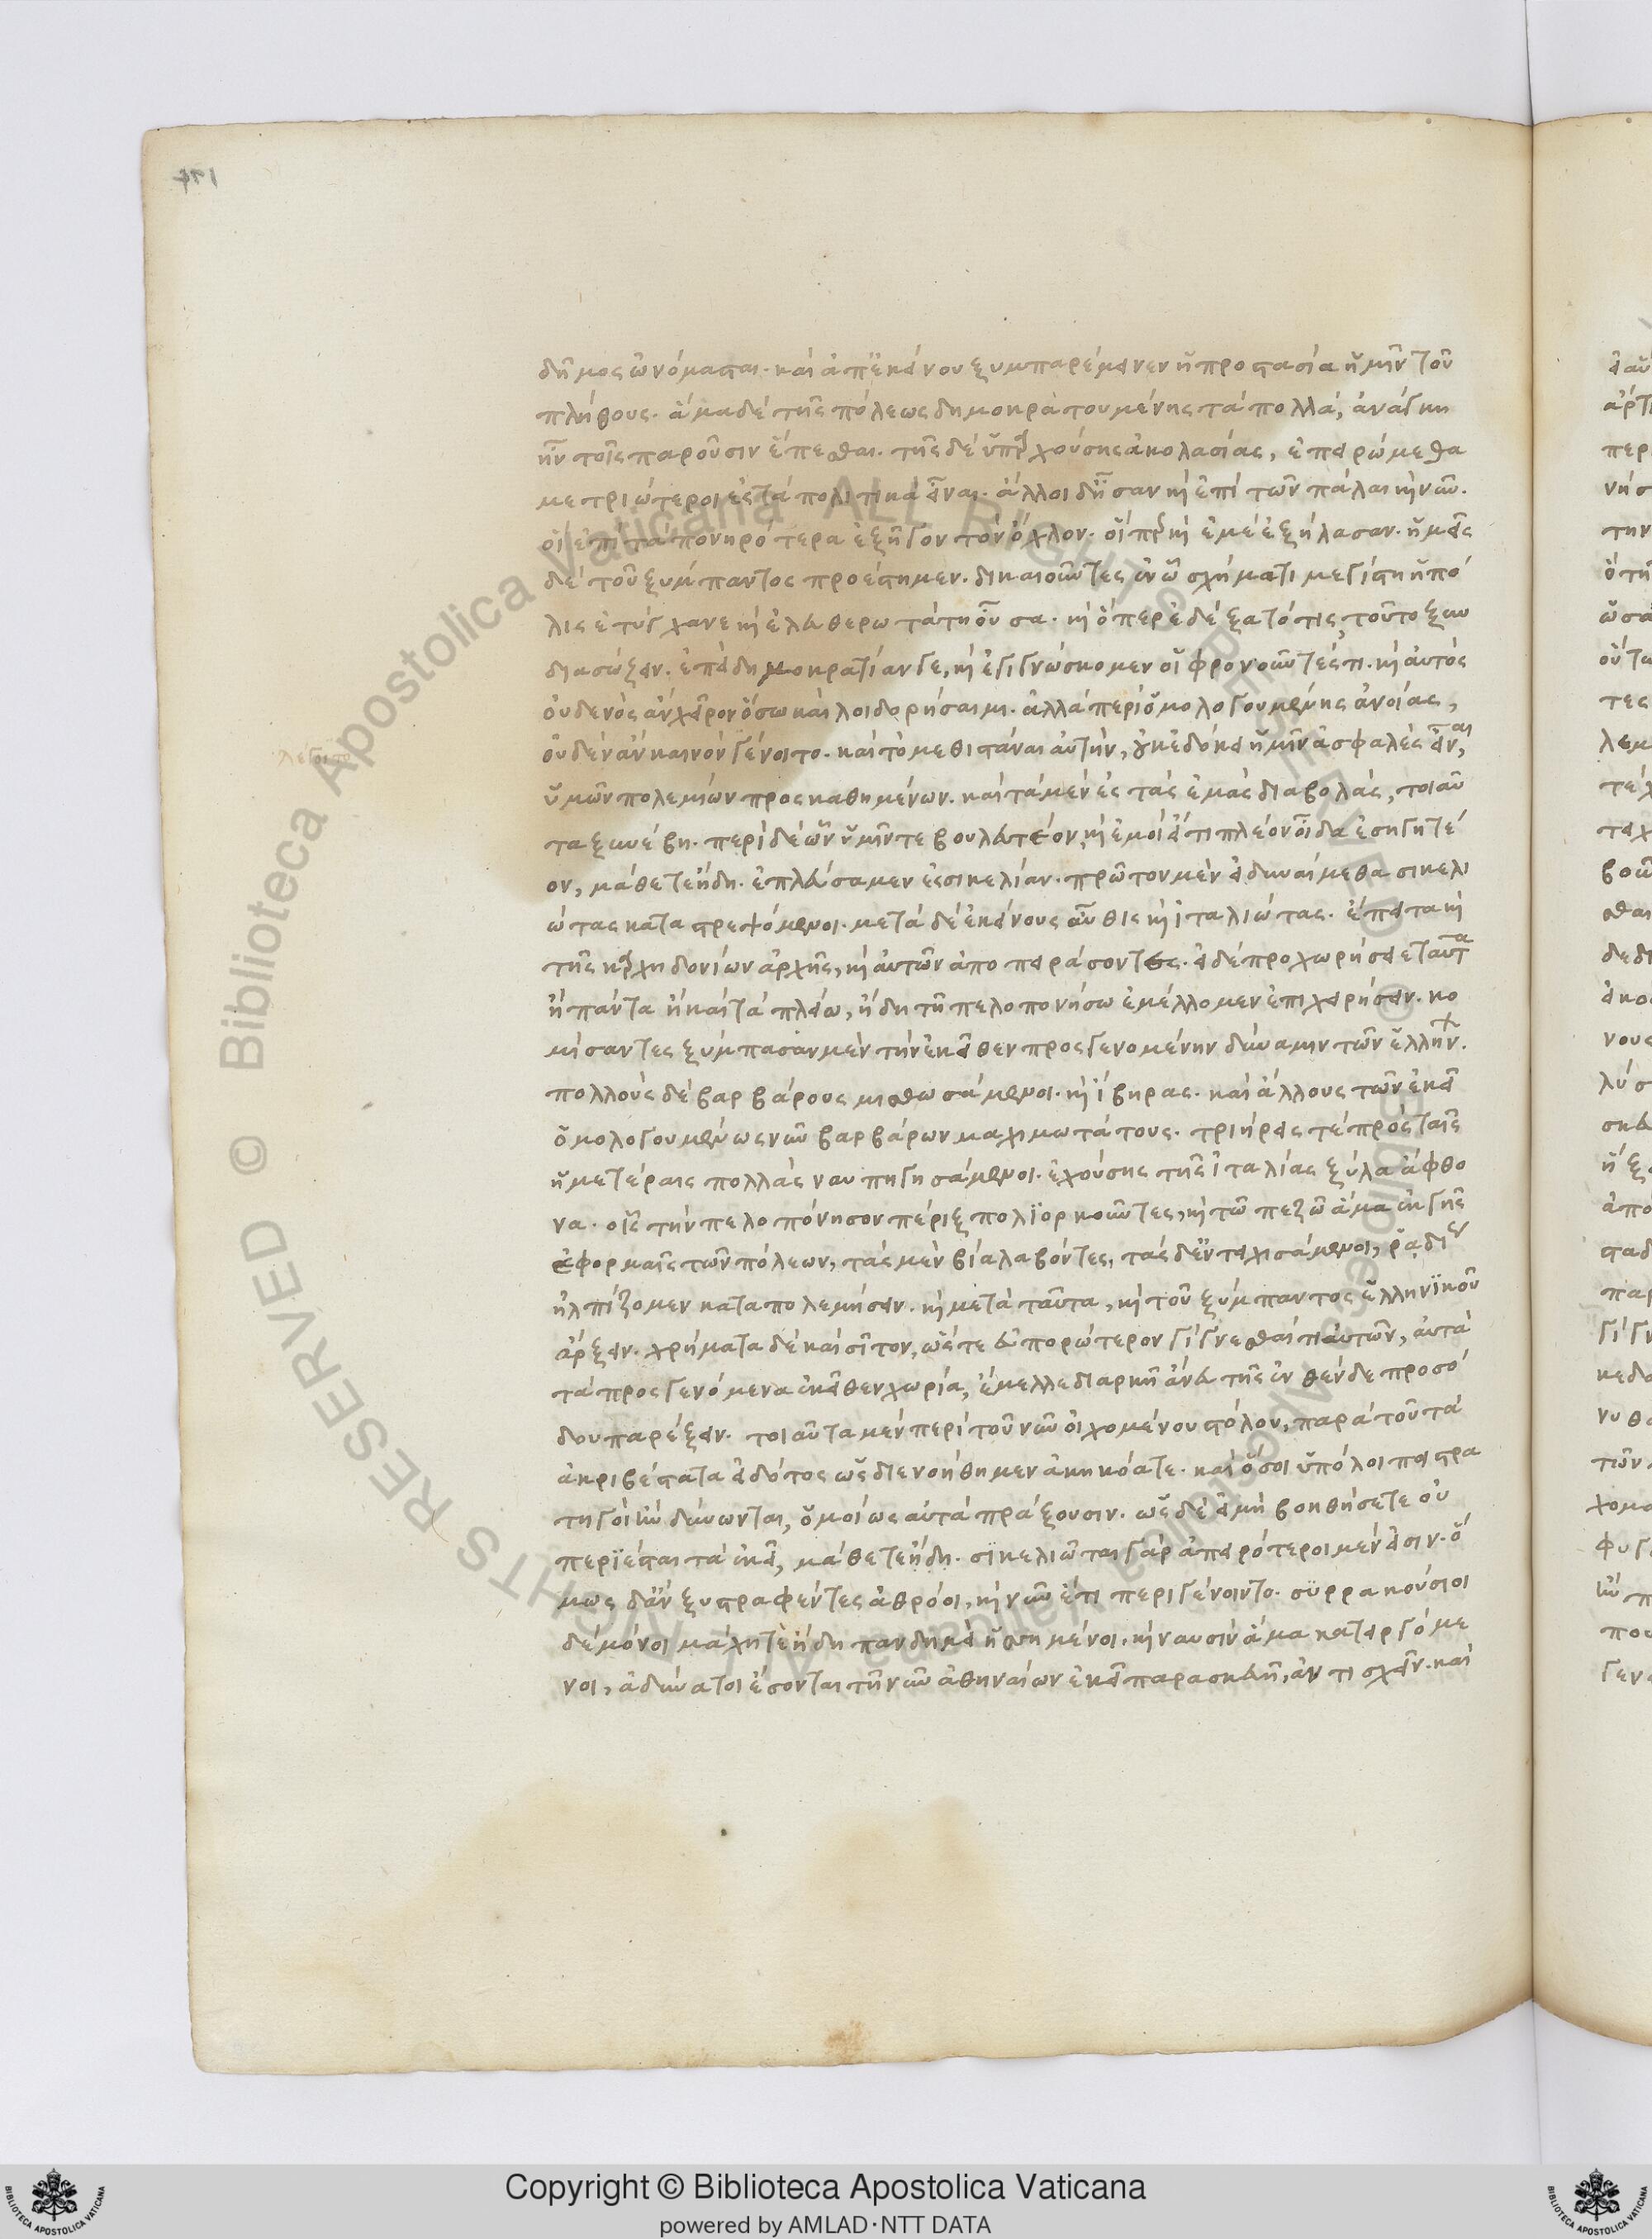 δῆμος ὠνόμασται. καὶ ἀπ' ἐκείνου ξυμπαρέμεινεν ἡ προστασία ἡμῖν τοῦ
πλήθους. ἅμα δὲ τῆς πόλεως δημοκρατουμένης τὰ πολλὰ, ἀνάγκη
ἦν τοῖς παροῦσιν ἕπεσθαι. τῆς δὲ ὑπαρχούσης ἀκολασίας, ἐπειρώμεθα
μετριώτεροι ἐς τὰ πολιτικὰ εἶναι. ἄλλοι δ' ἦσαν καὶ ἐπὶ τῶν πάλαι καὶ νῦν.
οἳ ἐπὶ τὰ πονηρότερα ἐξῆγον τὸν ὄχλον. οἵπερ καὶ ἐμὲ ἐξήλασαν. ἡμεῖς
δὲ τοῦ ξύμπαντος προέστημεν. δικαιοῦντες ἐν ᾧ σχήματι μεγίστη ἡ πό
λις ἐτύγχανε καὶ ἐλευθερωτάτη οὖσα. καὶ ὅπερ ἐδέξατό τις, τοῦτο ξυν
διασώζειν. ἐπεὶ δημοκρατίαν γε, καὶ ἐγιγνώσκομεν οἱ φρονοῦντές τι. καὶ αὐτὸς
οὐδενὸς ἂν χεῖρον ὅσω καὶ λοιδορήσαιμι. ἀλλὰ περὶ ὁμολογουμένης ἀνοίας,
οὐδὲν ἂν καινὸν γένοιτο. καὶ τὸ μεθιστάναι αὐτὴν, οὐκ ἐδόκει ἡμῖν ἀσφαλὲς εἶναι,
λέγοιτο
ὑμῶν πολεμίων προσκαθημένων. καὶ τὰ μὲν ἐς τὰς ἐμὰς διαβολὰς, τοιαῦ
τα ξυνέβη. περὶ δὲ ὧν ὑμῖν τε βουλευτέον, καὶ ἐμοὶ εἴ τι πλέον οἶδα ἐσηγητέ
ον, μάθετε ἤδη. ἐπλεύσαμεν ἐς σικελίαν. πρῶτον μὲν εἰ δυναίμεθα σικελι
ώτας καταστρεψόμενοι. μετὰ δὲ ἐκείνους αὖθις καὶ ἰταλιώτας. ἔπειτα καὶ
τῆς καρχηδονίων ἀρχῆς, καὶ αὐτῶν ἀποπειράσοντες. εἰ δὲ προχωρήσειε ταῦτα
ἢ πάντα ἢ καὶ τὰ πλείω, ἤδη τῆ πελοπονήσω ἐμέλλομεν ἐπιχειρήσειν. κο
μίσαντες ξύμπασαν μὲν τὴν ἐκεῖθεν προσγενομένην δύναμιν τῶν ἑλλήν.
πολλοὺς δὲ βαρβάρους μισθωσάμενοι. καὶ ἴβηρας. καὶ ἄλλους τῶν ἐκεῖ
ὁμολογουμένως νῦν βαρβάρων μαχιμωτάτους. τριήρεις τὲ πρὸς ταῖς
ἡμετέραις πολλὰς ναυπηγησάμενοι. ἐχούσης τῆς ἰταλίας ξύλα ἄφθο
να. οἷς τὴν πελοπόνησον πέριξ πολϊορκοῦντες, καὶ τῶ πεζῶ ἅμα ἐκ γῆς
ἐφορμαῖς τῶν πόλεων, τὰς μὲν βία λαβόντες, τὰς δ' ἐντειχισάμενοι, ῥαδίως
ἠλπίζομεν καταπολεμήσειν. καὶ μετὰ ταῦτα, καὶ τοῦ ξύμπαντος ἑλληνϊκοῦ
ἄρξειν. χρήματα δὲ καὶ σῖτον, ὥστε εὐπορώτερον γίγνεσθαί τι αὐτῶν, αὐτὰ
τὰ προσγενόμενα ἐκεῖθεν χωρία, ἔμελλε διαρκῆ ἄνευ τῆς ἐνθένδε προσό
δου παρέξειν. τοιαῦτα μὲν περὶ τοῦ νῦν οἰχομένου στόλου, παρὰ τοῦ τὰ
ἀκριβέστατα εἰδότος ὡς διενοήθημεν ἀκηκόατε. καὶ ὅσοι ὑπόλοιποι στρα
τηγοὶ ἢν δύνωνται, ὁμοίως αὐτὰ πράξουσιν. ὡς δὲ εἰ μὴ βοηθήσετε οὐ
περϊέσται τὰ ἐκεῖ, μάθετε ἤδη. σϊκελιῶται γὰρ ἀπειρότεροι μέν εἰσιν. ὅ
μως δ' ἂν ξυστραφέντες ἀθρόοι, καὶ νῦν ἔτι περιγένοιντο. συρρακούσιοι
δὲ μόνοι μάχη τὲ ἤδη πανδημεὶ ἡσσημένοι. καὶ ναυσὶν ἅμα κατειργόμε
νοι, ἀδύνατοι ἔσονται τῆ νῦν ἀθηναίων ἐκεῖ παρασκευῆ, ἀντισχεῖν. καὶ
Copyright © Biblioteca Apostolica Vaticana
powered by AMLAD·NTT DATA